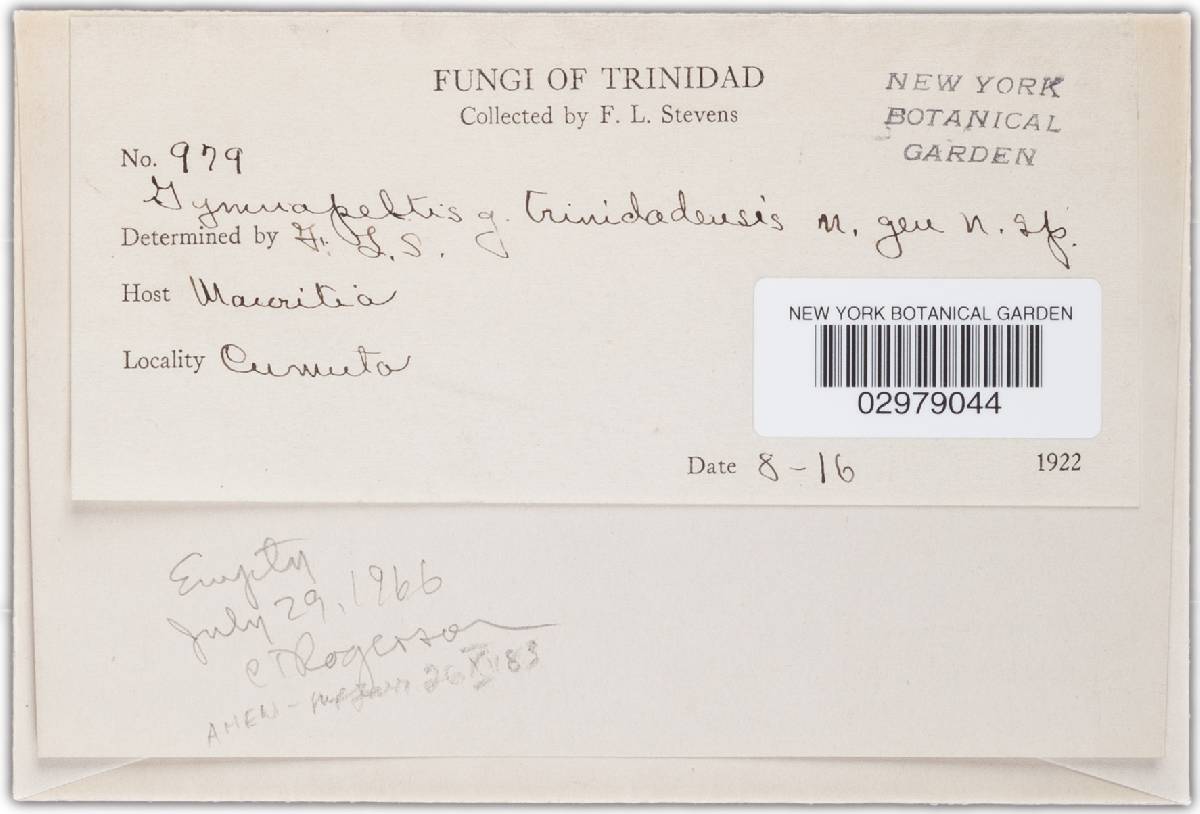 FUNGI OF TRINIDAD
Collected by F. L. Stevens
NEW YORK
BOTANICAL
GARDEN
No. 979
Gymnapeltis g. trinidadensis n. gen n. sp.
Determined by F. L. S.
Host Mauritia
Locality Cumuto
NEW YORK BOTANICAL GARDEN
02979044
Date 8-16 1922
Empty
July 29, 1966
CTRogerson
AMEN - 26 XI 83